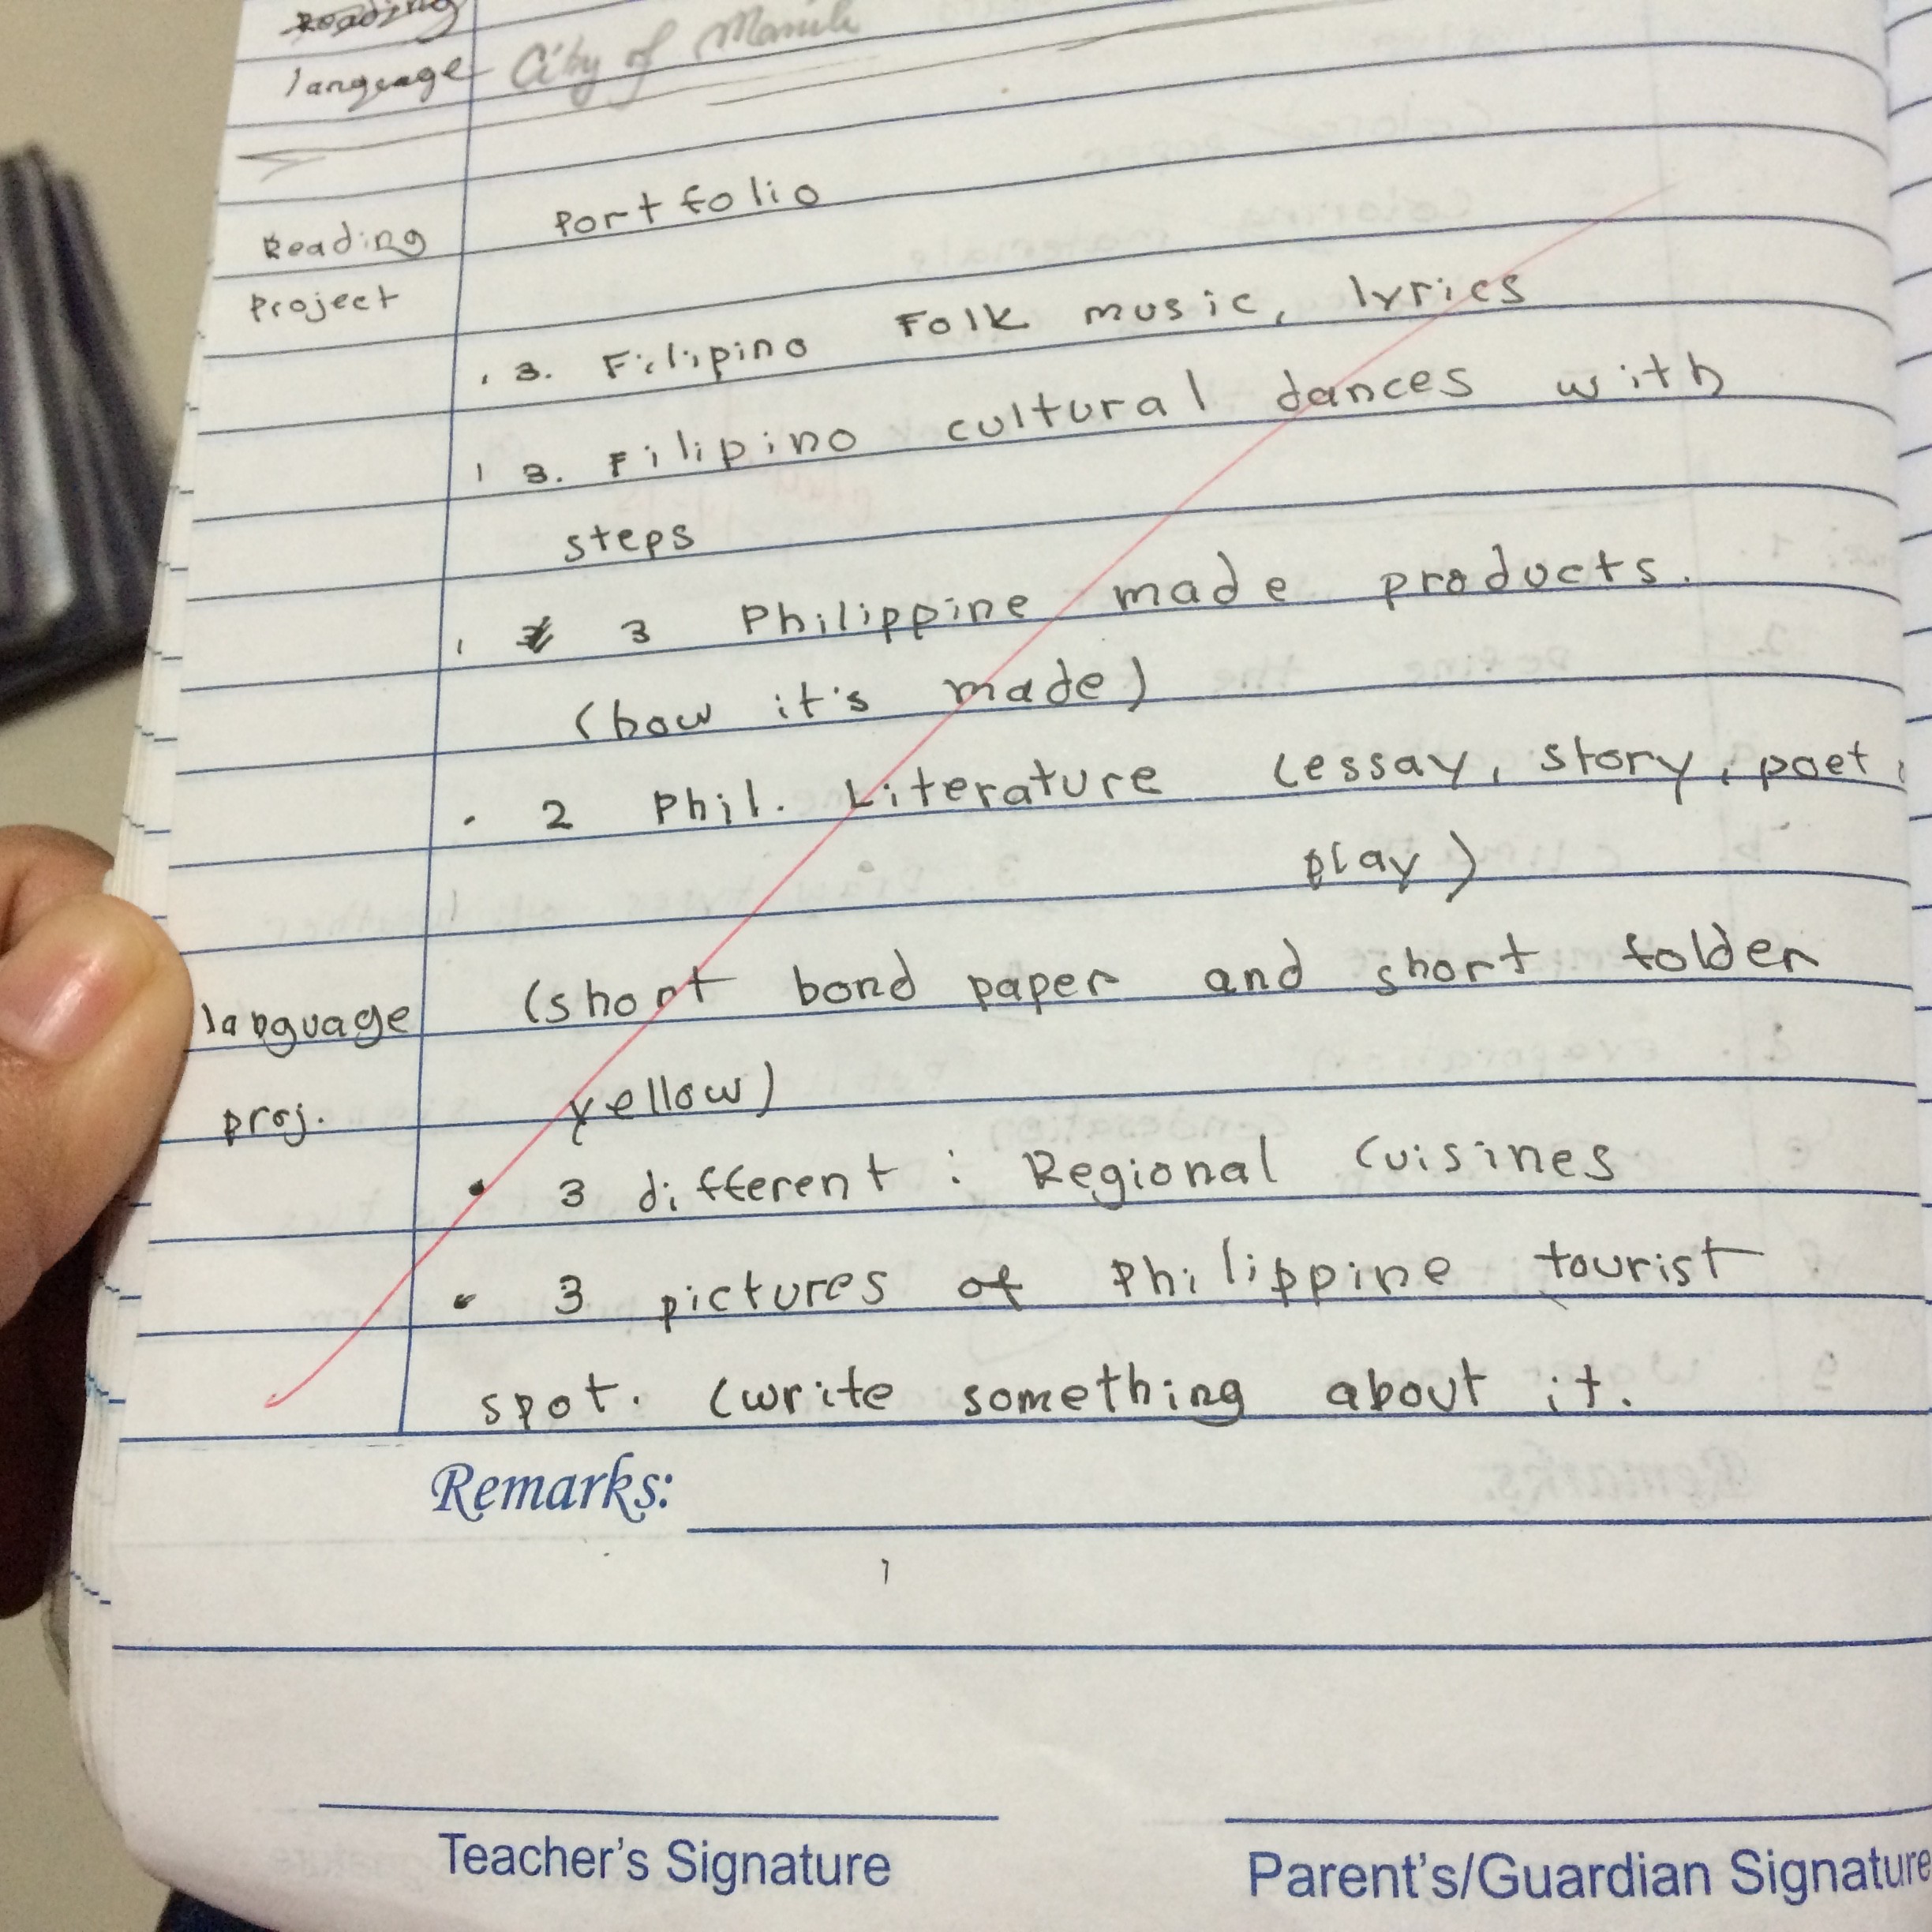 Reading
language City of Manila
Reading Portfolio
Project
. 3. Filipino Folk music, lyrics
. 3. Filipino cultural dances with
steps
. 3 Philippine made products.
(how it's made)
. 2 Phil. Literature (essay, story, poet,
play)
language (short bond paper and short folder
proj. yellow)
• 3 different : Regional Cuisines
• 3 pictures of Philippine tourist
spot. (write something about it.
Remarks:
Teacher's Signature Parent's/Guardian Signature